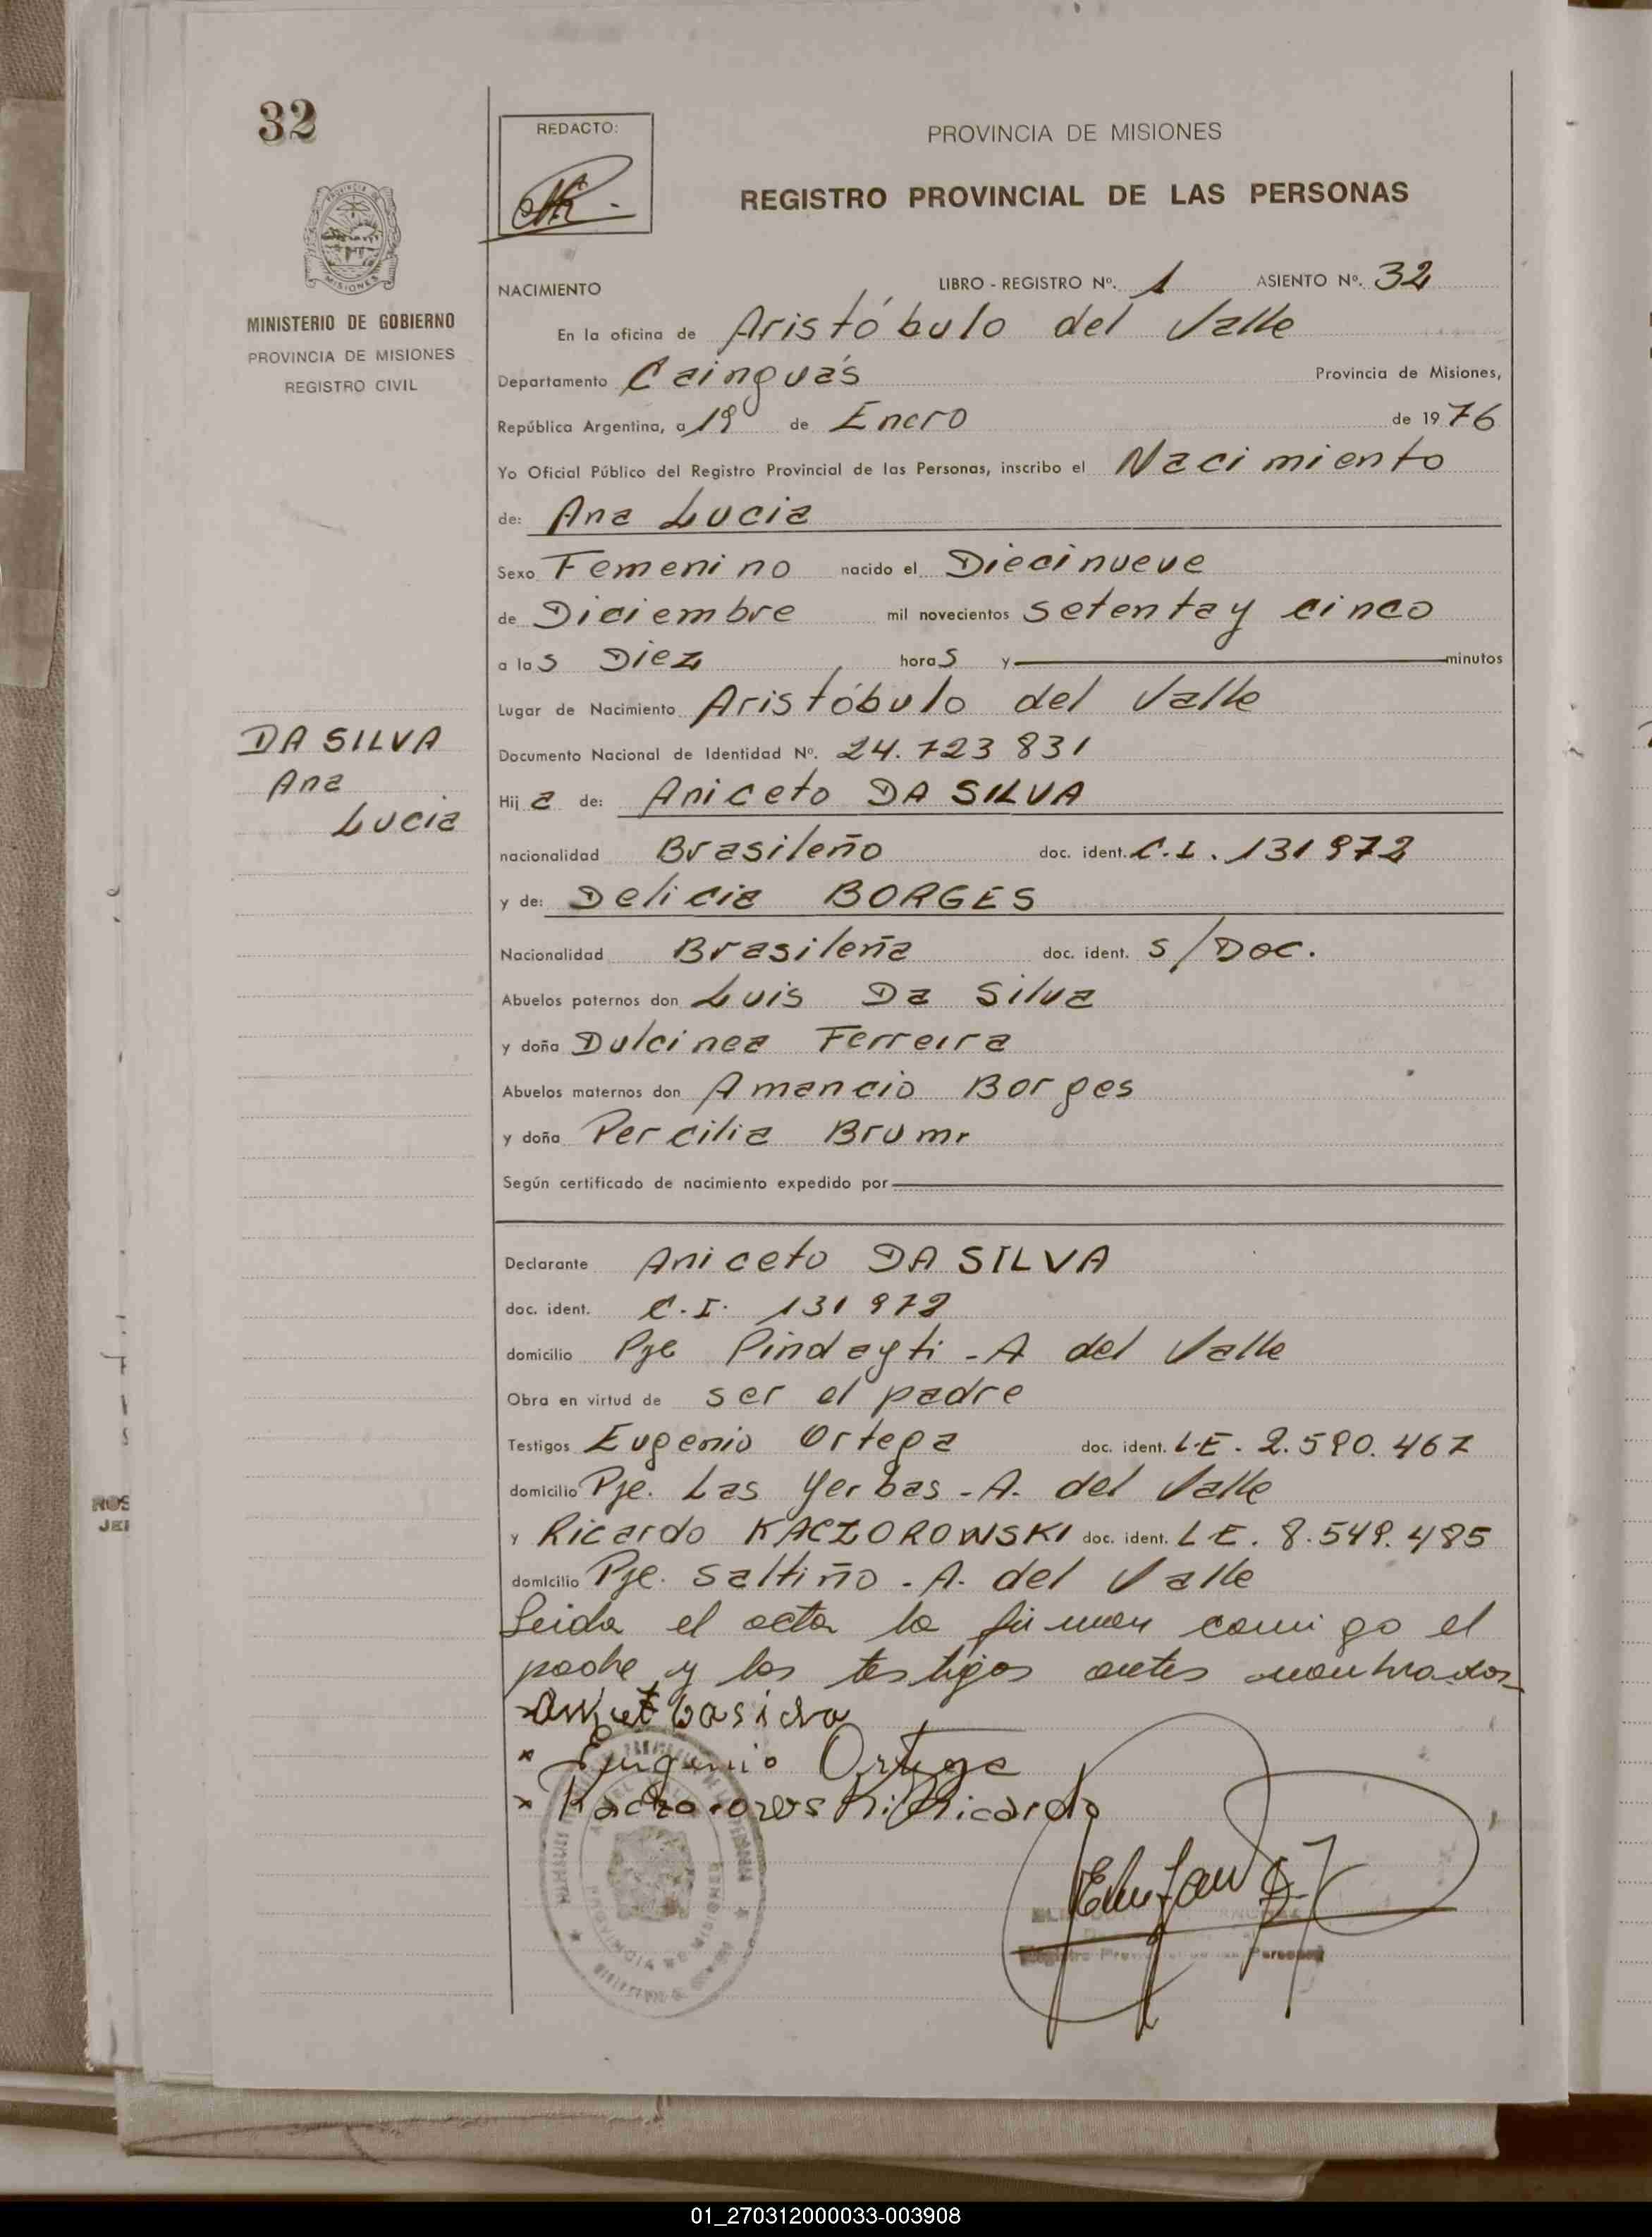 32
REDACTO:
PROVINCIA DE MISIONES
REGISTRO PROVINCIAL DE LAS PERSONAS
MISIONES
MINISTERIO DE GOBIERNO
PROVINCIA DE MISIONES
REGISTRO CIVIL
NACIMIENTO LIBRO - REGISTRO Nº. 1 ASIENTO Nº. 32
En la oficina de Aristóbulo del Valle
Departamento Cainguás Provincia de Misiones,
República Argentina, a 19 de Enero de 1976
Yo Oficial Público del Registro Provincial de las Personas, inscribo el Nacimiento
de: Ana Lucia
Sexo Femenino nacido el Diecinueve
de Diciembre mil novecientos setenta y cinco
a las Diez horas y minutos
Lugar de Nacimiento Aristóbulo del Valle
DA SILVA
Ana
Lucia
Documento Nacional de Identidad Nº. 24.723831
Hija de: Aniceto DA SILVA
nacionalidad Brasileño doc. ident. C.I. 131972
y de: Delicia BORGES
Nacionalidad Brasileña doc. ident. S/Doc.
Abuelos paternos don Luis Da Silva
y doña Dulcinea Ferreira
Abuelos maternos don Amancio Borges
y doña Percilia
Según certificado de nacimiento expedido por
Declarante Aniceto DA SILVA
doc. ident. C.I. 131972
domicilio Pje Pindayti - A del Valle
Obra en virtud de ser el padre
Testigos Eugenio Ortega doc. ident. L.E. 2.590.467
domicilio Pje. Las Yerbas - A. del Valle
y Ricardo KACZOROWSKI doc. ident. L.E. 8.549.485
domicilio Pje. Saltiño - A. del Valle
Leida el acta la firman conmigo el
padre y los testigos antes nombrados
x Eugenio Ortega
x Kaczorowski Ricardo
PROVINCIA DE MISIONES
ROS
JEI
01_270312000033-003908